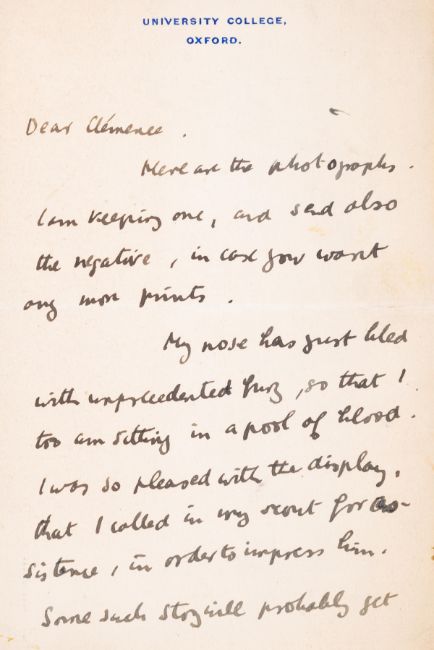 UNIVERSITY COLLEGE,
OXFORD.
Dear Clémence.
Here are the photographs.
I am keeping one, and send also
the negative, in case you want
any more prints.
My nose has just bled
with unprecedented fury, so that I
too am sitting in a pool of blood.
I was so pleased with the display,
that I called in my scout for as-
sistence, in order to impress him.
Some such story will probably get